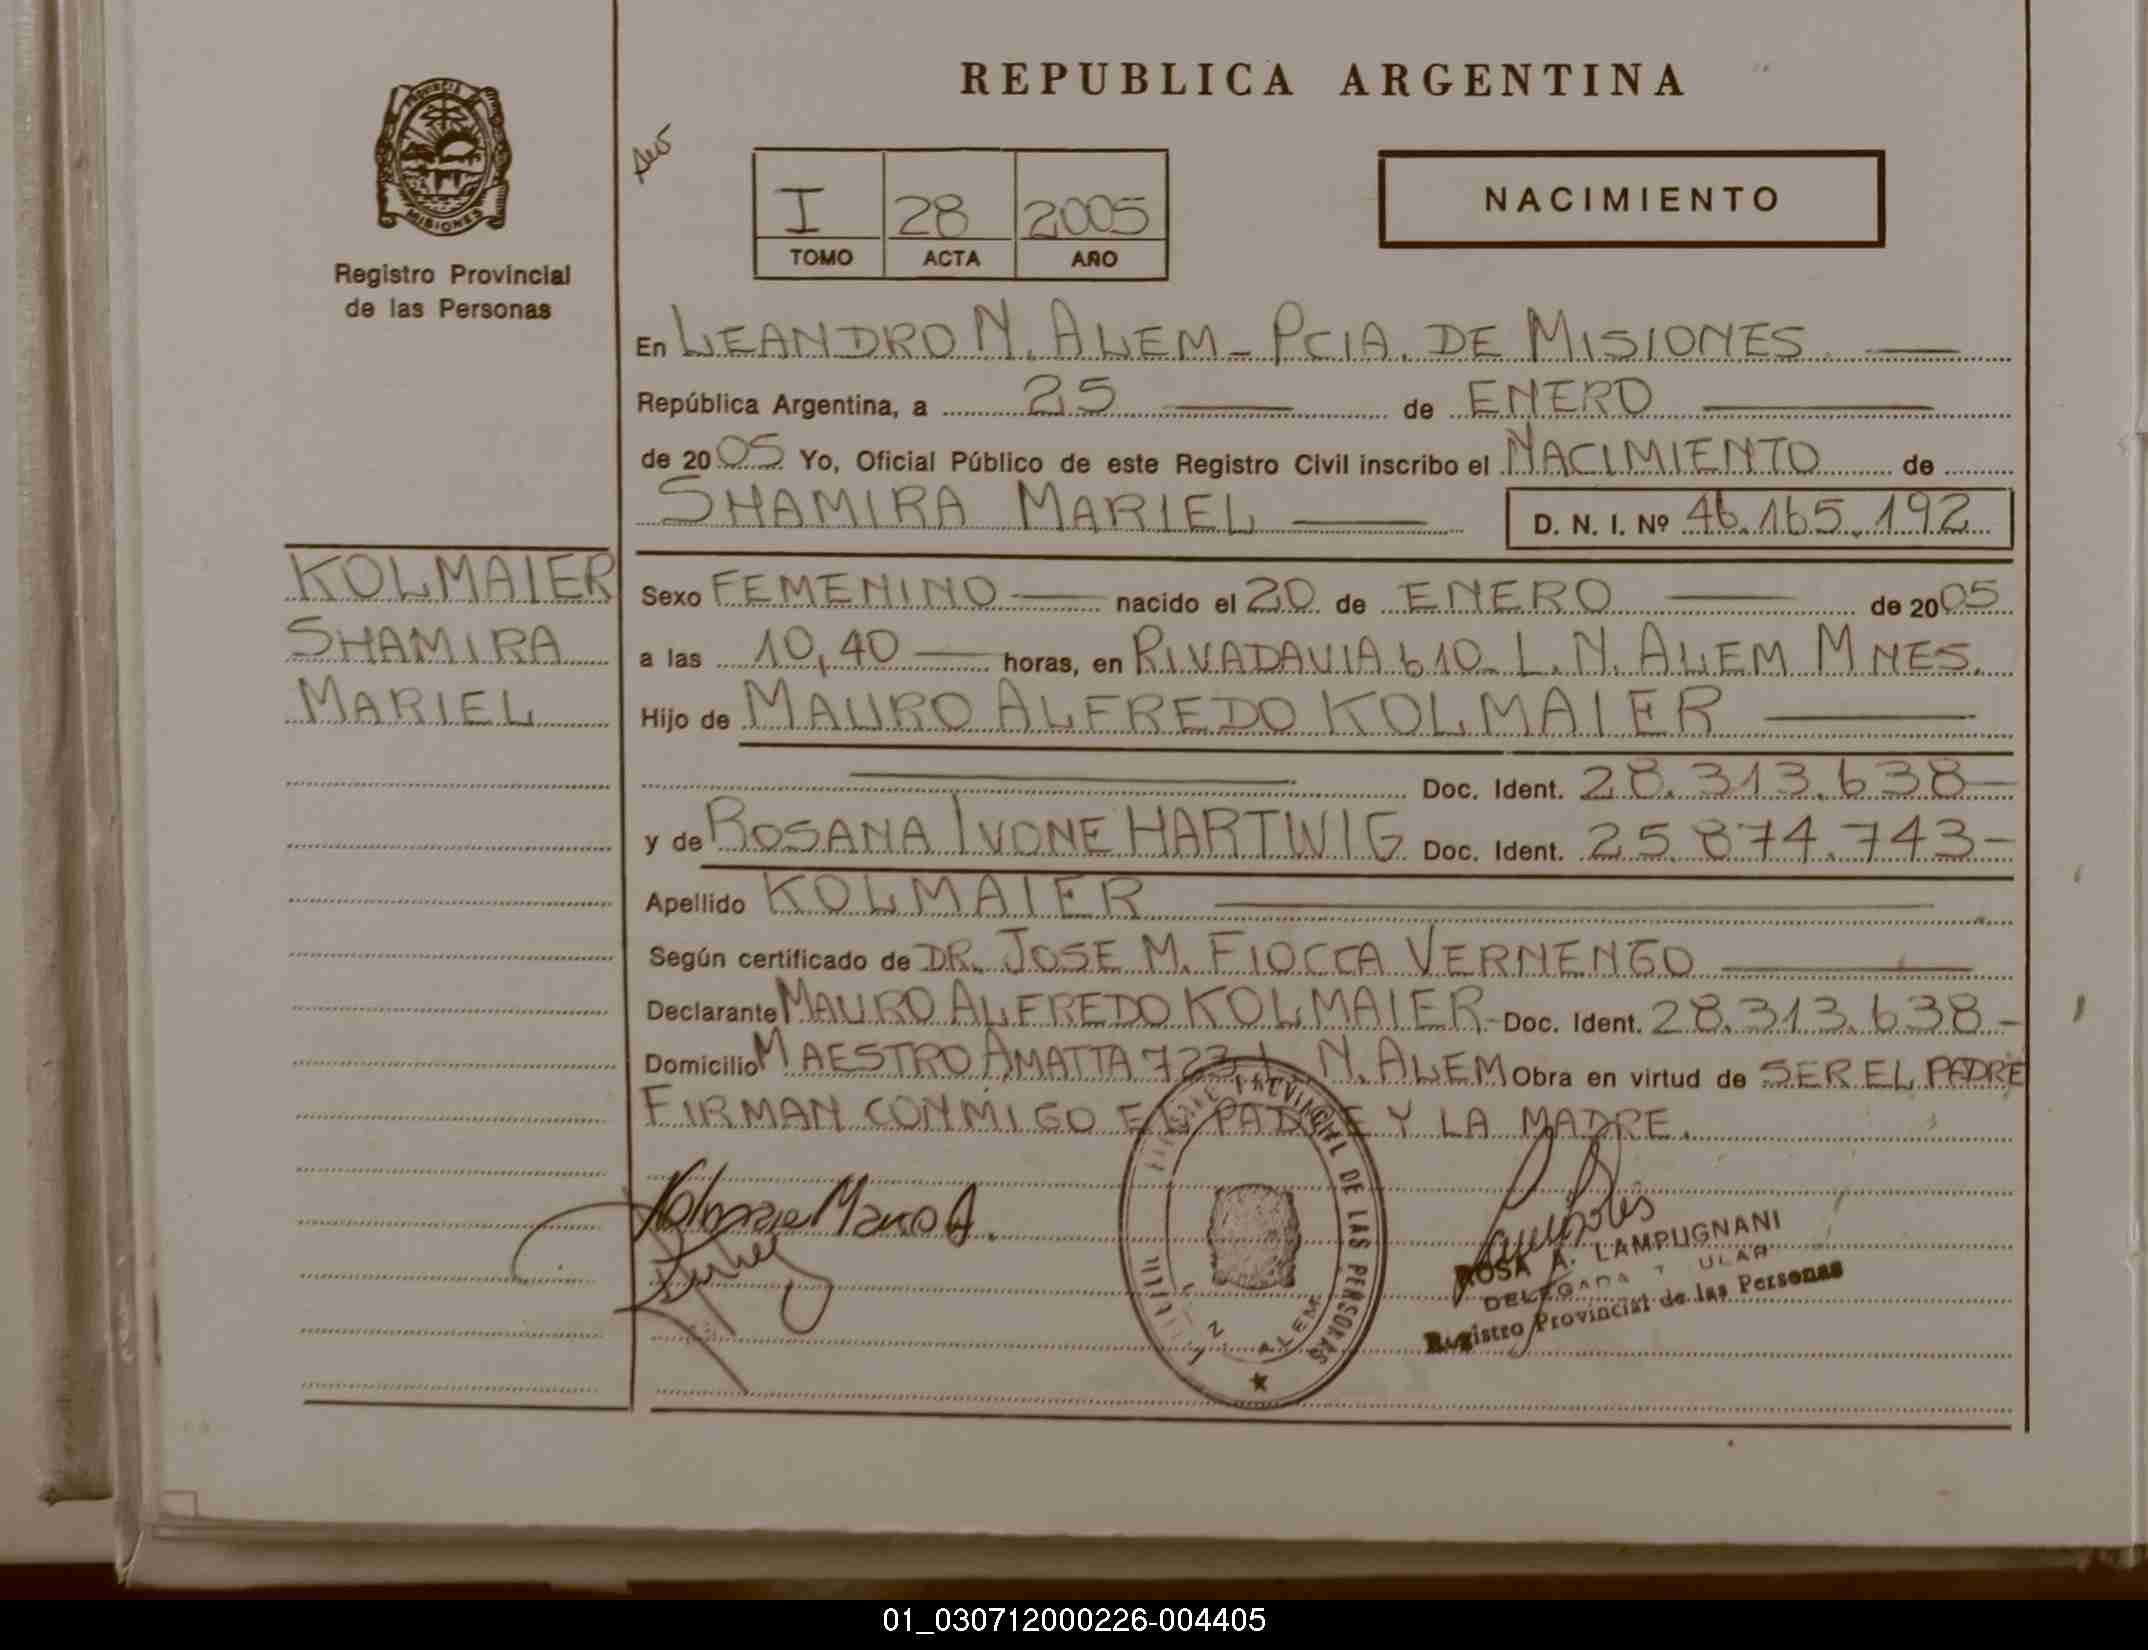 REPUBLICA ARGENTINA
PROVINCIA
MISIONES
Registro Provincial
de las Personas
I 28 2005
TOMO ACTA AÑO
NACIMIENTO
En LEANDRO N. ALEM - PCIA. DE MISIONES
República Argentina, a 25 de ENERO
de 2005 Yo, Oficial Público de este Registro Civil inscribo el NACIMIENTO de
SHAMIRA MARIEL D. N. I. Nº 46.165.192
KOLMAIER
SHAMIRA
MARIEL
Sexo FEMENINO nacido el 20 de ENERO de 2005
a las 10,40 horas, en RIVADAVIA 610 - L. N. ALEM MNES.
Hijo de MAURO ALFREDO KOLMAIER
Doc. Ident. 28.313.638-
y de ROSANA IVONE HARTWIG Doc. Ident. 25.874.743-
Apellido KOLMAIER
Según certificado de DR. JOSE M. FIOCCA VERNENGO
Declarante MAURO ALFREDO KOLMAIER- Doc. Ident. 28.313.638-
Domicilio MAESTRO AMATTA 723 L. N. ALEM Obra en virtud de SER EL PADRE
FIRMAN CONMIGO EL PADRE Y LA MADRE.
Kolmaier Mauro A.
PROVINCIAL DE LAS PERSONAS
ALEM
ROSA A. LAMPUGNANI
DELEGADA TITULAR
Registro Provincial de las Personas
01_030712000226-004405